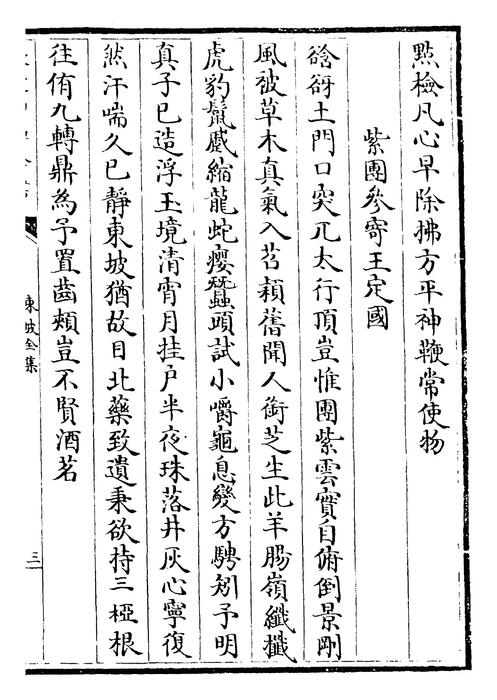 點檢凡心早除拂方平神鞭常使物
紫團參寄王定國
谽谺土門口突兀太行頂豈惟團紫雲實自俯倒景剛
風被草木真氣入苕穎舊聞人銜芝生此羊腸嶺纖攕
虎豹鬛蹙縮龍蛇癭蠶頭試小嚼龜息變方騁矧予明
真子已造浮玉境清宵月挂戶半夜珠落井灰心寧復
然汗喘久已靜東坡猶故目北藥致遺秉欲持三椏根
往侑九轉鼎為予置齒頰豈不賢酒茗
東坡全集
三